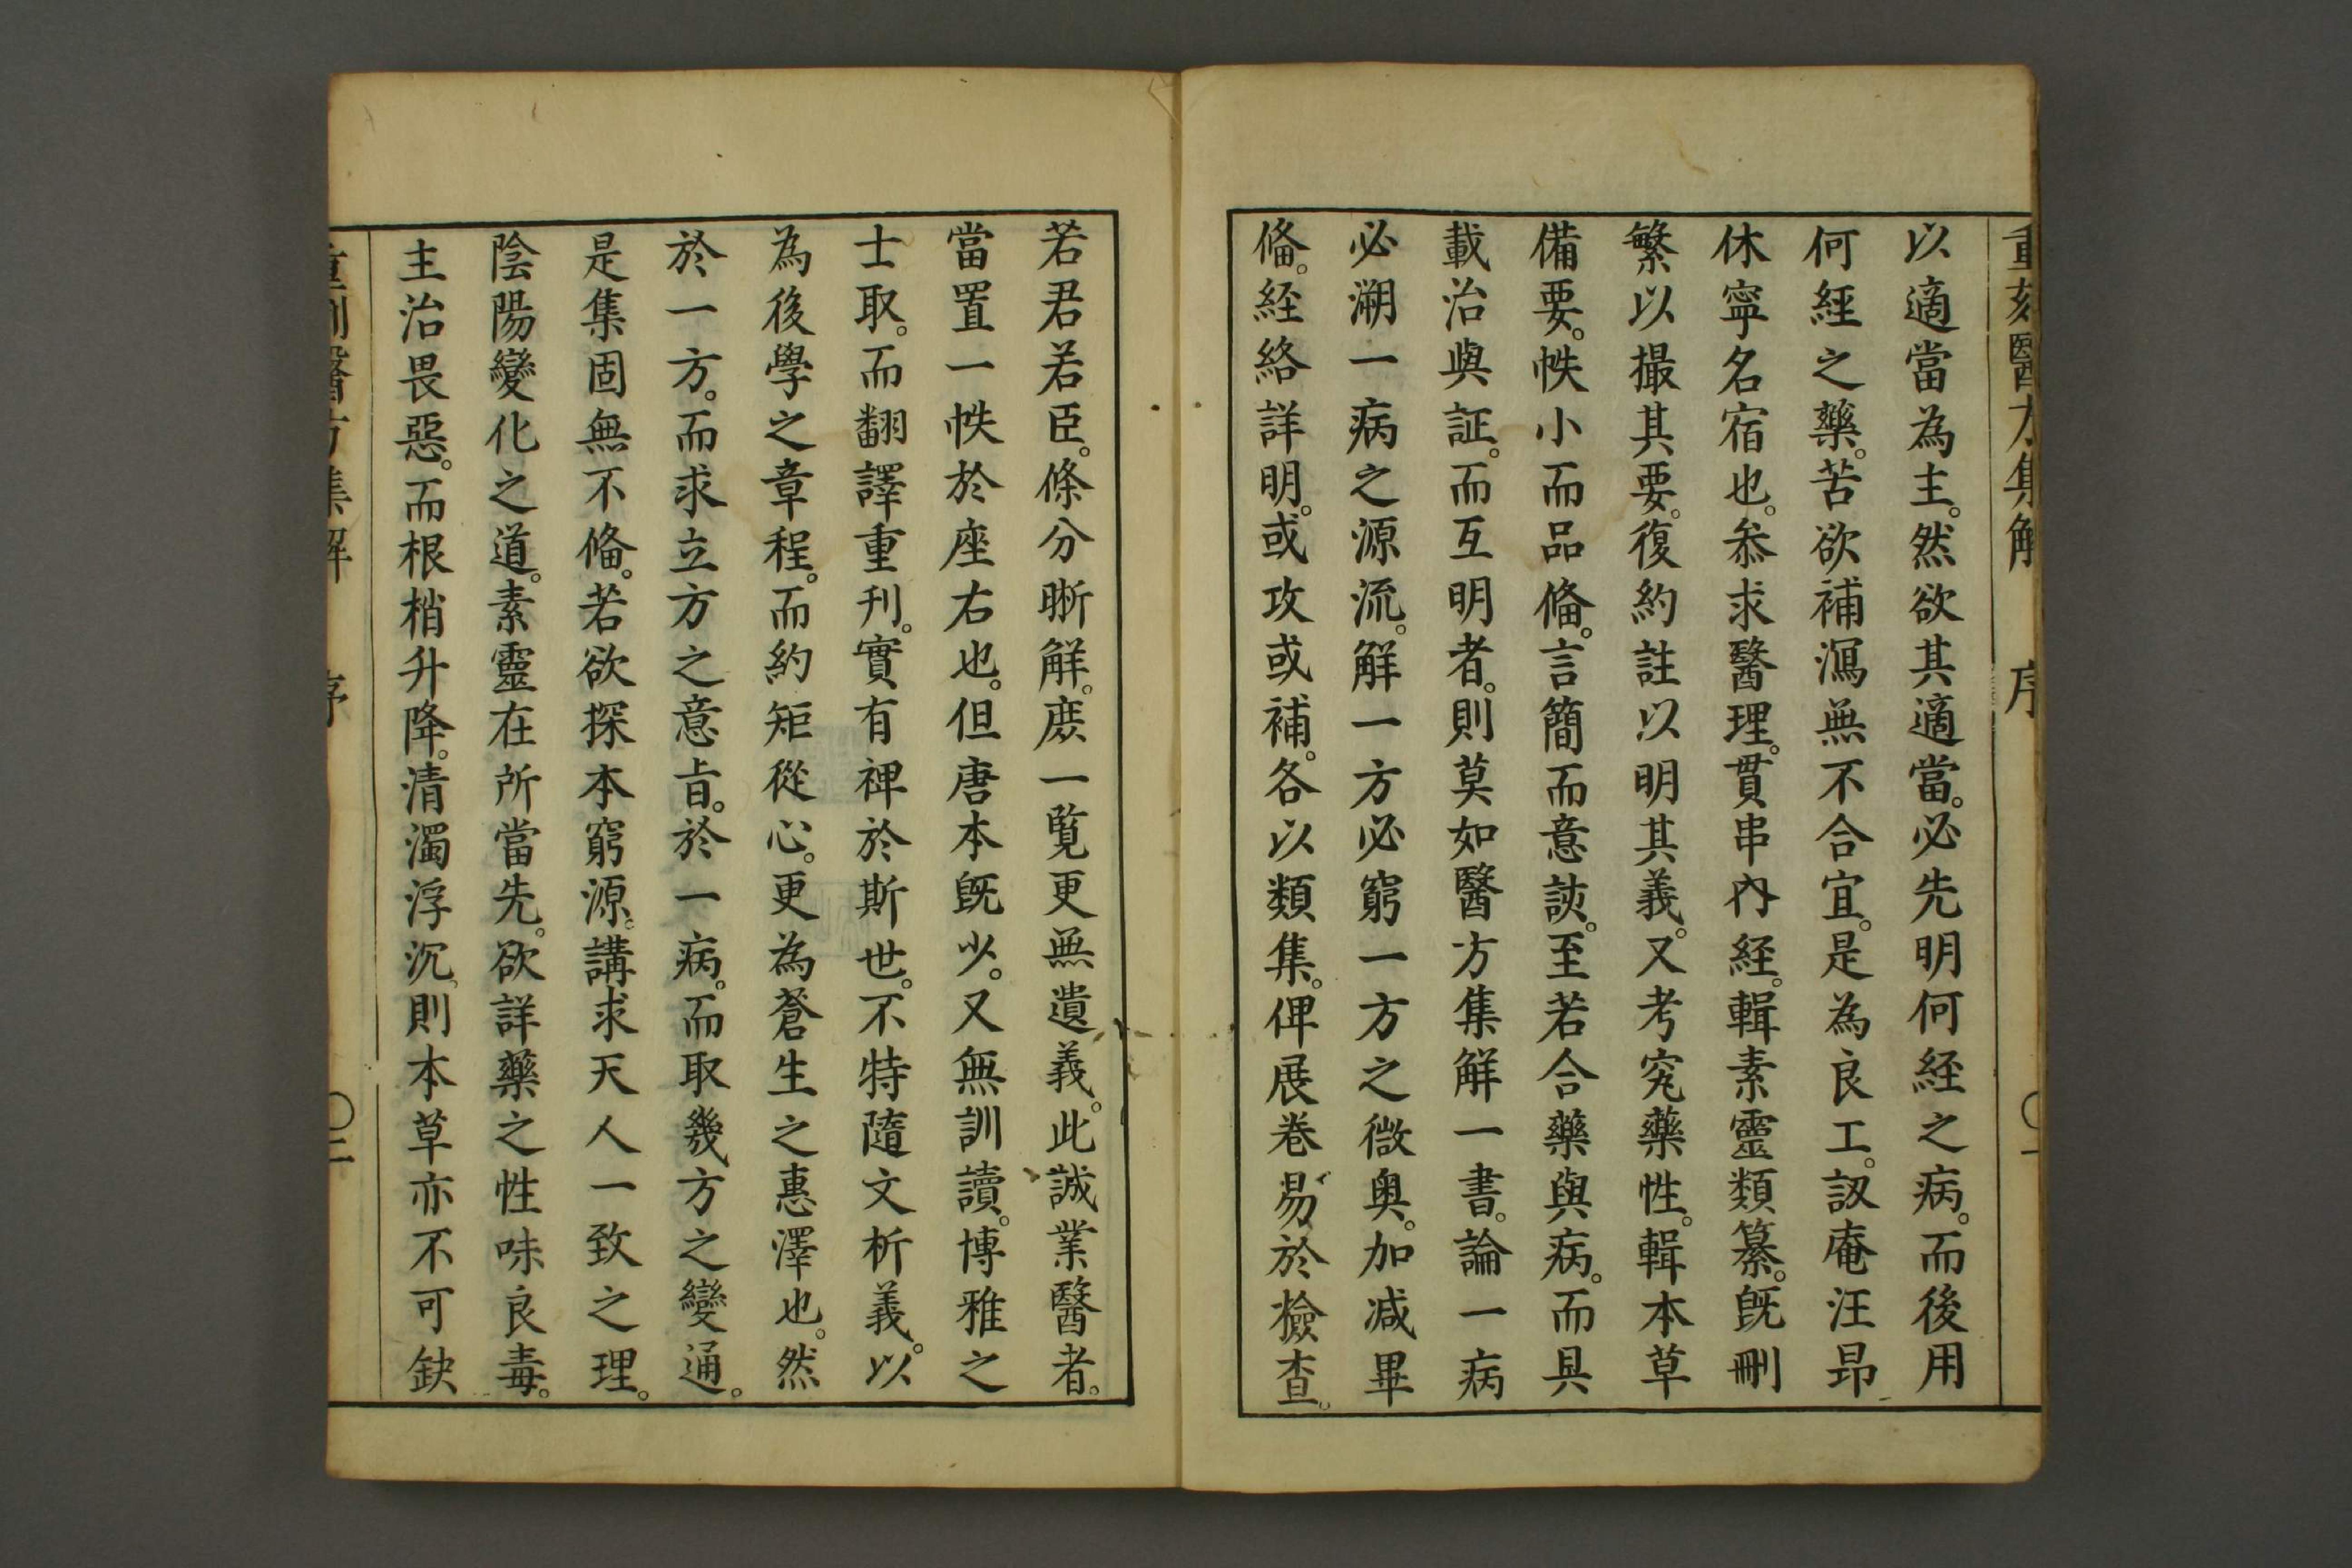 重刻醫方集解 序 〇一
以適當為主。然欲其適當。必先明何経之病。而後用
何經之藥。苦欲補瀉無不合宜。是為良工。訒庵汪昂
休寧名宿也。叅求醫理。貫串內経。輯素靈類纂。旣刪
繁以撮其要。復約註以明其義。又考究藥性。輯本草
備要。帙小而品俻。言簡而意該。至若合藥與病。而具
載治與証。而互明者。則莫如醫方集解一書。論一病
必溯一病之源流。解一方必窮一方之微奥。加減畢
俻。経絡詳明。或攻或補。各以類集。俾展卷易於檢查。
若君若臣。條分晰解。庻一覧更無遺義。此誠業醫者。
當置一帙於座右也。但唐本旣少。又無訓讀。博雅之
士取。而翻譯重刋。實有裨於斯世。不特隨文析義。以
為後學之章程。而約矩從心。更為蒼生之惠澤也。然
於一方。而求立方之意㫖。於一病。而取幾方之變通。
是集固無不俻。若欲探本窮源。講求天人一致之理。
陰陽變化之道。素靈在所當先。欲詳藥之性味良毒。
主治畏惡。而根梢升降。清濁浮沉。則本草亦不可缺
重刻醫方集解 序 〇二